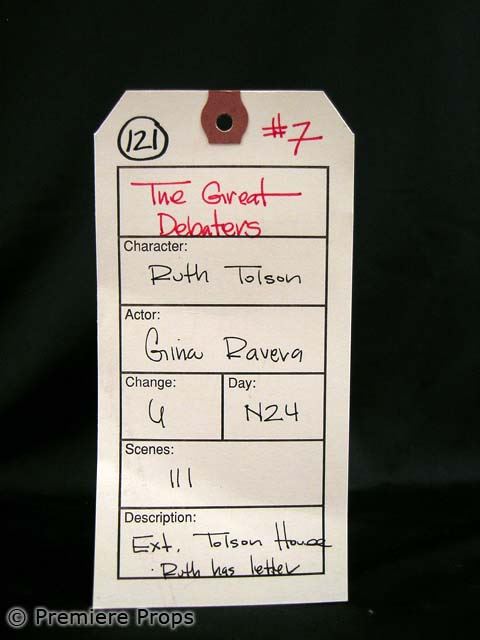 121
#7
The Great
Debaters
Character:
Ruth Tolson
Actor:
Gina Ravera
Change:
Day:
N24
Scenes:
111
Description:
Ext. Tolson House
· Ruth has letter
© Premiere Props